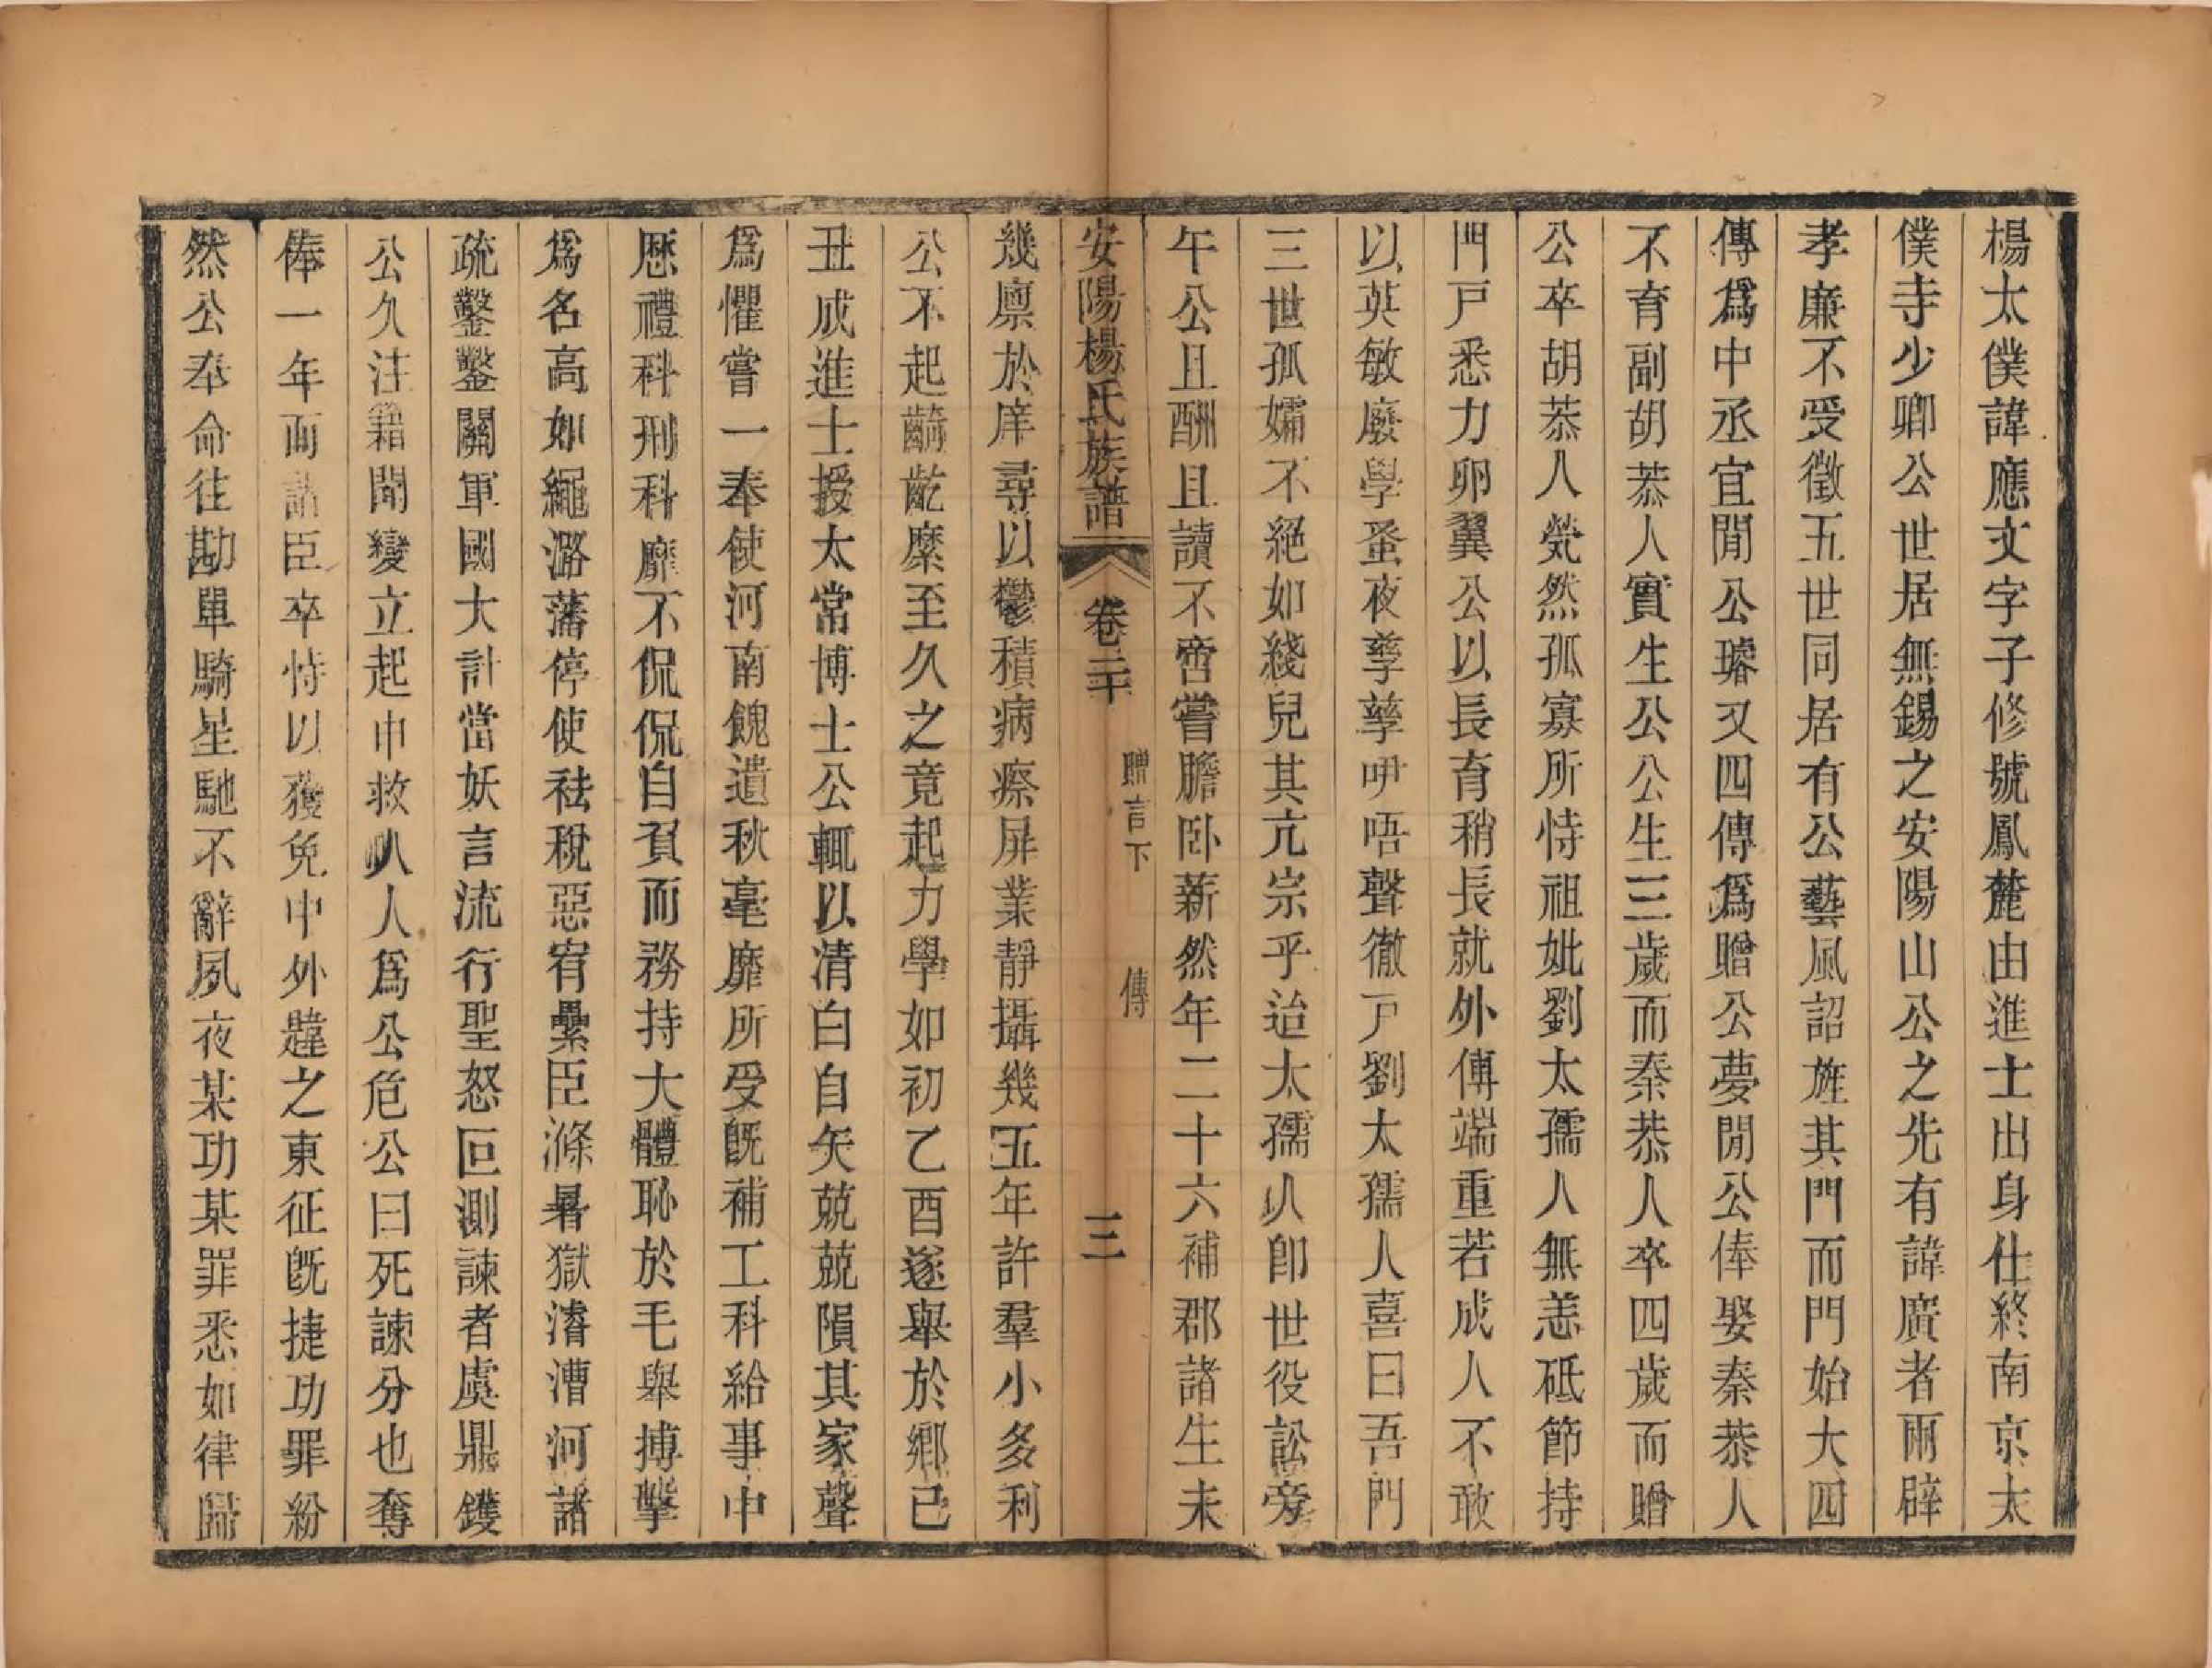 楊太僕諱應文字子修號鳳麓由進士出身仕終南京太
僕寺少卿公世居無錫之安陽山公之先有諱廣者兩辟
孝廉不受徵五世同居有公藝風詔旌其門而門始大四
傳爲中丞宜閒公璿又四傳爲贈公夢閒公俸娶秦恭人
不育副胡恭人實生公公生三歲而秦恭人卒四歲而贈
公卒胡恭人煢然孤寡所恃祖妣劉太孺人無恙砥節持
門戸悉力卵翼公以長育稍長就外傅端重若成人不敢
以英敏廢學蚤夜孳孳吚唔聲徹戸劉太孺人喜曰吾門
三世孤孀不絕如綫兒其亢宗乎迨太孺人卽世役訟旁
午公且酬且讀不啻嘗膽卧薪然年二十六補郡諸生未
安陽楊氏族譜 卷二十 贈言下 傳 三
幾廪於庠尋以鬱積病瘵屏業靜攝幾五年許羣小多利
公不起齮齕縻至久之竟起力學如初乙酉遂舉於鄉己
丑成進士授太常博士公輒以清白自矢兢兢隕其家聲
爲懼嘗一奉使河南餽遺秋毫靡所受旣補工科給事中
歷禮科刑科靡不侃侃自負而務持大體恥於毛舉搏擊
爲名高如繩潞藩停使祛稅惡宥纍臣滌暑獄濬漕河諸
疏鑿鑿關軍國大計當妖言流行聖怒叵測諫者虞鼎鑊
公久注籍聞變立起申救人人爲公危公曰死諫分也奪
俸一年而諸臣卒恃以獲免中外韙之東征旣捷功罪紛
然公奉命往勘單騎星馳不辭夙夜某功某罪悉如律歸